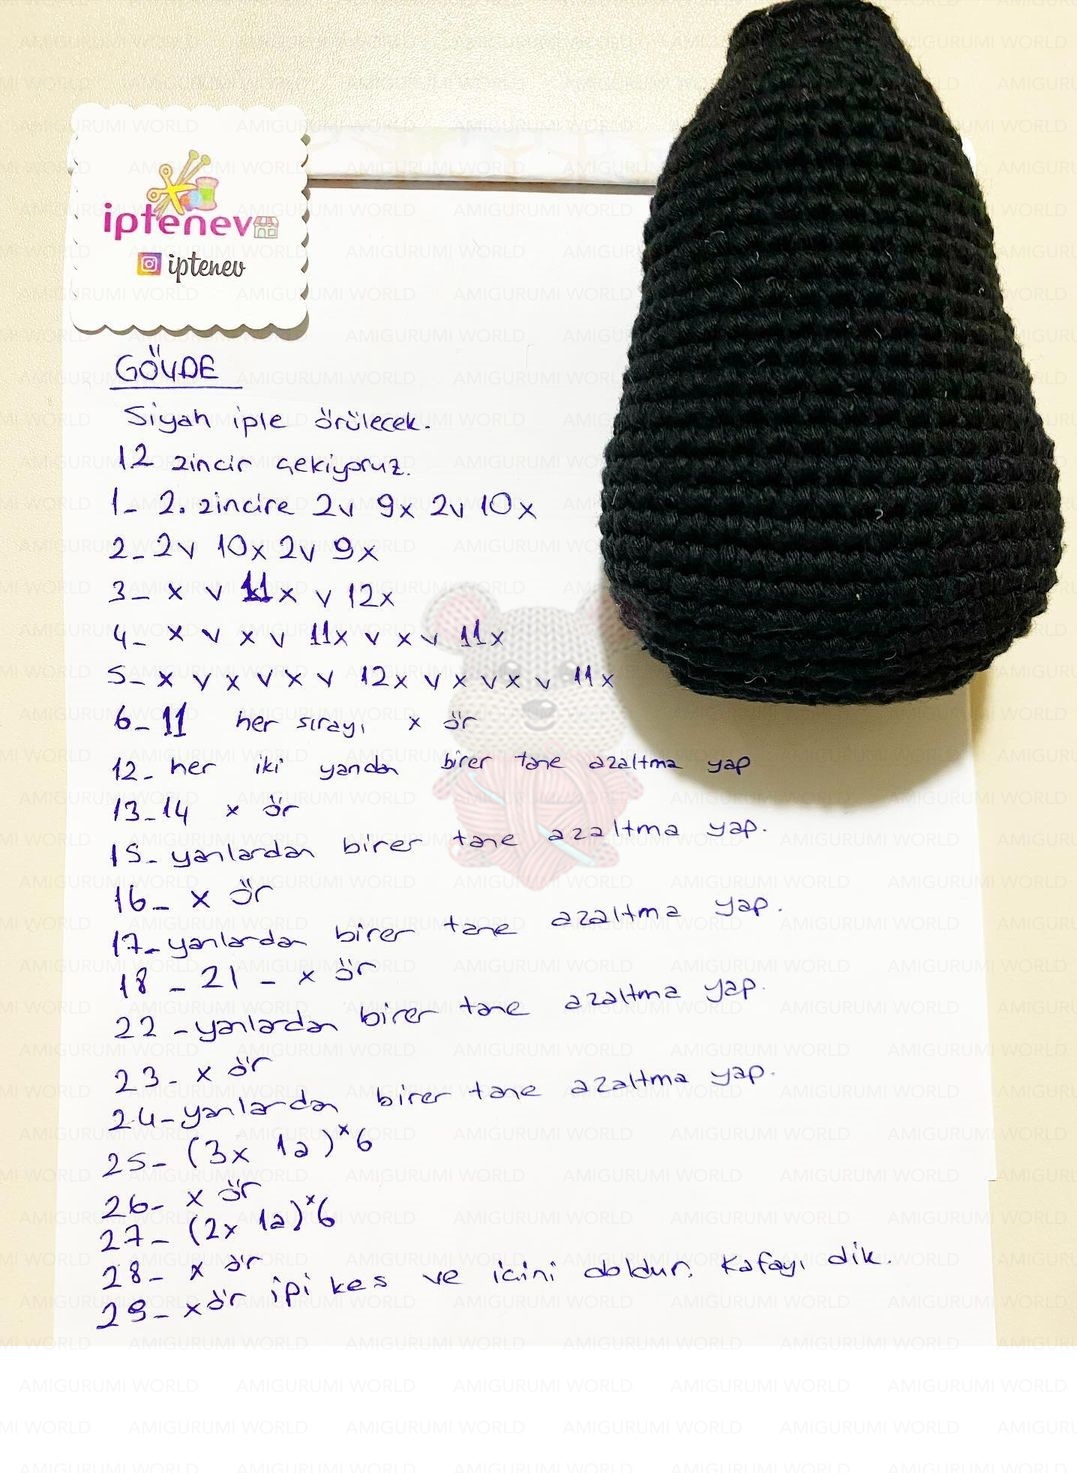 iptenev
iptenev
GÖVDE
Siyah iple örülecek.
12 zincir çekiyoruz.
1- 2. zincire 2v 9x 2v 10x
2- 2v 10x 2v 9x
3- x v 11x v 12x
4- x v x v 11x v x v 11x
5- x v x v x v 12x v x v x v 11x
6- 11 her sırayı x ör
12- her iki yandan birer tane azaltma yap
13-14 x ör
15- yanlardan birer tane azaltma yap.
16- x ör
17- yanlardan birer tane azaltma yap.
18 - 21 - x ör
22 - yanlardan birer tane azaltma yap.
23- x ör
24- yanlardan birer tane azaltma yap.
25- (3x 1a)x6
26- x ör
27- (2x 1a)x6
28- x ör
29- x ör ipi kes ve içini doldur. Kafayı dik.
AMIGURUMI WORLD